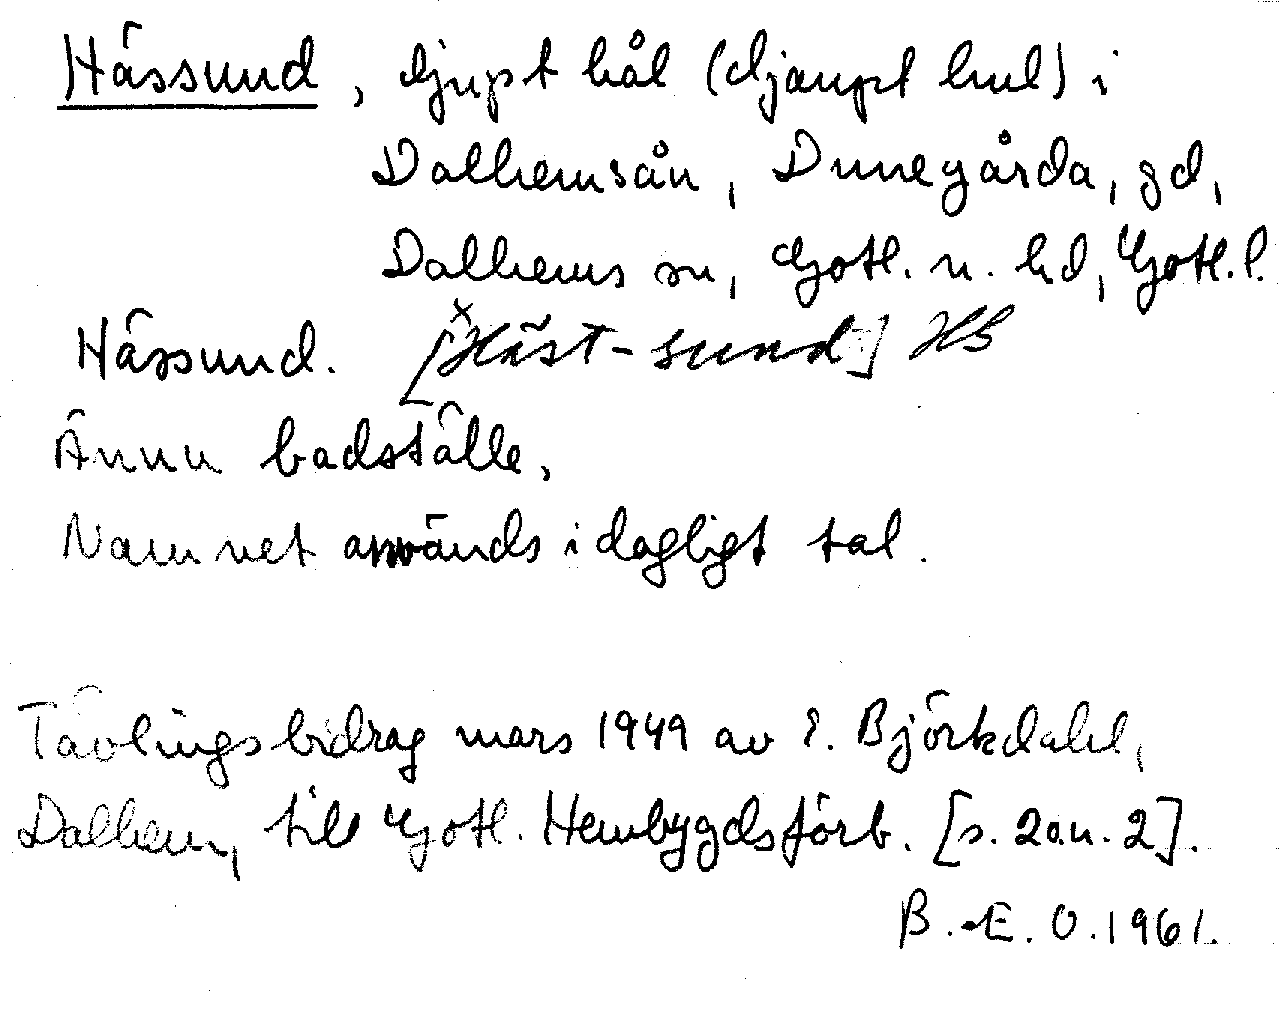 Hässund, djupt hål (djaupt hul) i
Dalhemsån, Dunegårda, gd,
Dalhems sn, Gotl. n. hd, Gotl. l.
Hässund. [ˣHäst-sund] HB
Ännu badställe,
Namnet används i dagligt tal.
Tävlingsbidrag mars 1949 av E. Björkdahl,
Dalhem, till Gotl. Hembygdsförb. [s. 2 o.n. 2].
B. E. O. 1961.